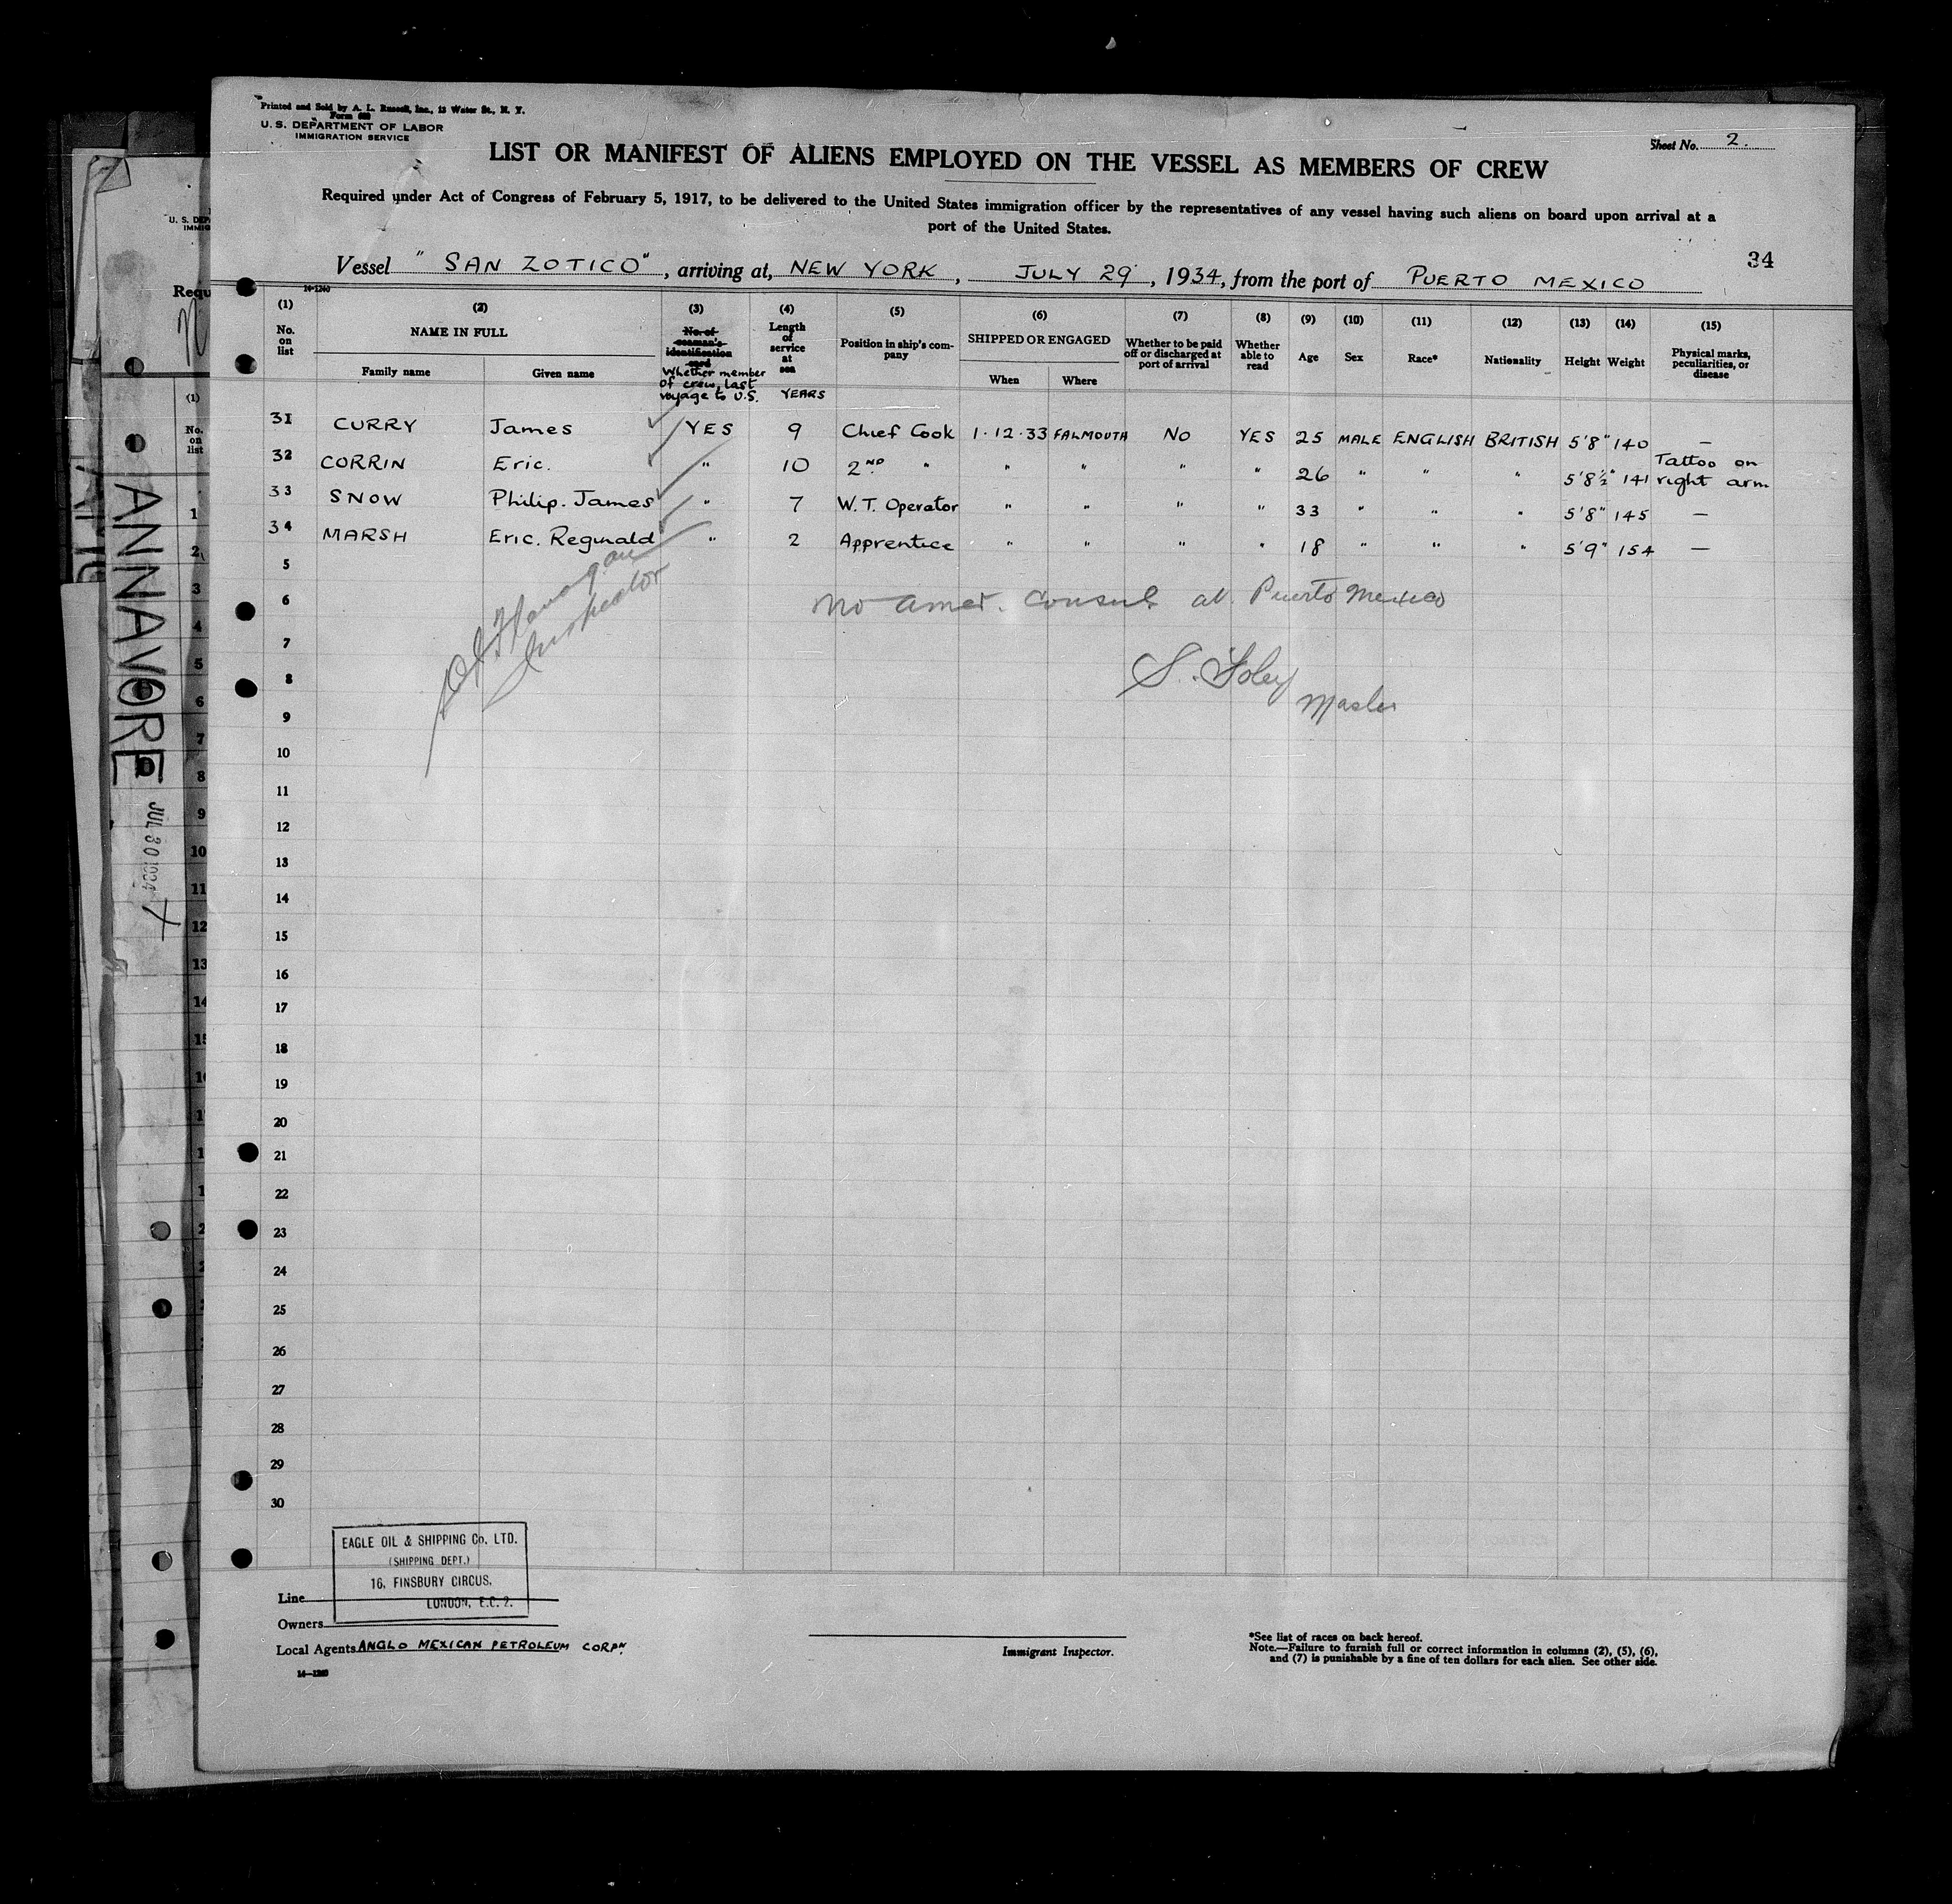 Printed and Sold by A. L. Russell, Inc., 13 Water St., N. Y.
U. S. DEPARTMENT OF LABOR
IMMIGRATION SERVICE
Sheet No. 2.
LIST OR MANIFEST OF ALIENS EMPLOYED ON THE VESSEL AS MEMBERS OF CREW
Required under Act of Congress of February 5, 1917, to be delivered to the United States immigration officer by the representatives of any vessel having such aliens on board upon arrival at a
port of the United States.
34
Vessel "SAN ZOTICO", arriving at, NEW YORK, JULY 29, 1934, from the port of PUERTO MEXICO
(1) (2) (3) (4) (5) (6) (7) (8) (9) (10) (11) (12) (13) (14) (15)
No. on list NAME IN FULL No. of seaman's identification card Length of service at sea Position in ship's company SHIPPED OR ENGAGED Whether to be paid off or discharged at port of arrival Whether able to read Age Sex Race* Nationality Height Weight Physical marks, peculiarities, or disease
Family name Given name Whether member of crew, last voyage to U.S. YEARS When Where
31 CURRY James YES 9 Chief Cook 1·12·33 FALMOUTH NO YES 25 MALE ENGLISH BRITISH 5'8" 140 —
32 CORRIN Eric. " 10 2ND " " " " " 26 " " " 5'8½" 141 Tattoo on right arm
33 SNOW Philip. James " 7 W.T. Operator " " " " 33 " " " 5'8" 145 —
34 MARSH Eric. Reginald " 2 Apprentice " " " " 18 " " " 5'9" 154 —
5
6 No Amer. Consul at Puerto Mexico
7
8 S. Foley
Master
Inspector
9
10
11
12
13
14
15
16
17
18
19
20
21
22
23
24
25
26
27
28
29
30
EAGLE OIL & SHIPPING Co. LTD.
(SHIPPING DEPT.)
16, FINSBURY CIRCUS,
LONDON, E.C.2.
Line
Owners
Local Agents ANGLO MEXICAN PETROLEUM CORPN.
Immigrant Inspector.
*See list of races on back hereof.
Note.—Failure to furnish full or correct information in columns (2), (5), (6),
and (7) is punishable by a fine of ten dollars for each alien. See other side.
ANNAVORE
JUL 30 1934